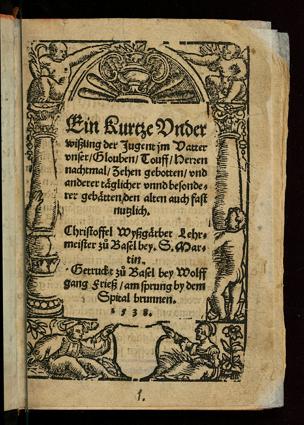 Ein Kurtze Vnder
wißung der Jugent jm Vatter
vnser/Glouben/Touff/Herren
nachtmal/Zehen gebotten/vnd
anderer täglicher vnnd besonde-
rer gebätten/den alten auch fast
nutzlich.
Christoffel Wyßgärber Lehr-
meister zů Basel bey. S. Mar-
tin.
Getruckt zů Basel bey Wolff
gang Frieß/am sprung by dem
Spital brunnen.
1538.
1.